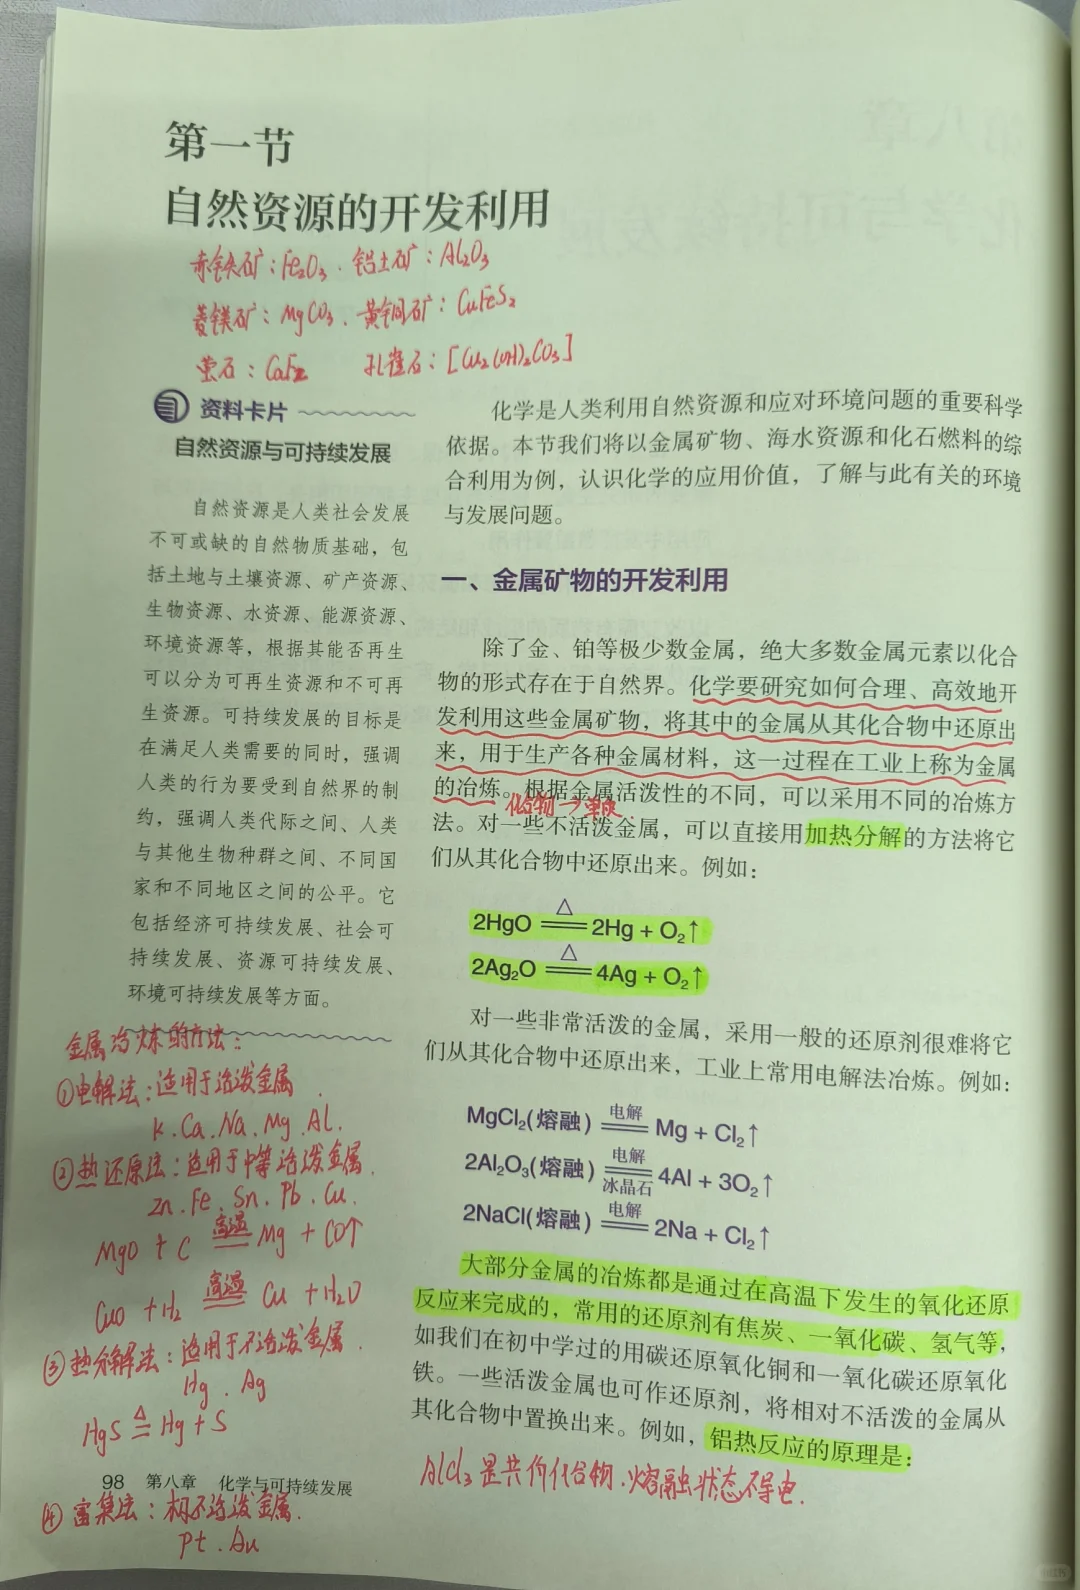 第一节
自然资源的开发利用
赤铁矿：Fe₂O₃、铝土矿：Al₂O₃
菱镁矿：MgCO₃、黄铜矿：CuFeS₂
萤石：CaF₂ 孔雀石：[Cu₂(OH)₂CO₃]
资料卡片
自然资源与可持续发展
自然资源是人类社会发展
不可或缺的自然物质基础，包
括土地与土壤资源、矿产资源、
生物资源、水资源、能源资源、
环境资源等，根据其能否再生
可以分为可再生资源和不可再
生资源。可持续发展的目标是
在满足人类需要的同时，强调
人类的行为要受到自然界的制
约，强调人类代际之间、人类
与其他生物种群之间、不同国
家和不同地区之间的公平。它
包括经济可持续发展、社会可
持续发展、资源可持续发展、
环境可持续发展等方面。
金属冶炼的方法：
①电解法：适用于活泼金属
K、Ca、Na、Mg、Al.
②热还原法：适用于中等活泼金属.
Zn、Fe、Sn、Pb、Cu.
MgO + C 高温 Mg + CO↑
CuO + H₂ 高温 Cu + H₂O
③热分解法：适用于不活泼金属.
Hg、Ag
HgS △ Hg + S
98 第八章 化学与可持续发展
④富集法：极不活泼金属.
Pt、Au
化学是人类利用自然资源和应对环境问题的重要科学
依据。本节我们将以金属矿物、海水资源和化石燃料的综
合利用为例，认识化学的应用价值，了解与此有关的环境
与发展问题。
一、金属矿物的开发利用
除了金、铂等极少数金属，绝大多数金属元素以化合
物的形式存在于自然界。化学要研究如何合理、高效地开
发利用这些金属矿物，将其中的金属从其化合物中还原出
来，用于生产各种金属材料，这一过程在工业上称为金属
的冶炼。根据金属活泼性的不同，可以采用不同的冶炼方
化合物→单质.
法。对一些不活泼金属，可以直接用加热分解的方法将它
们从其化合物中还原出来。例如：
2HgO △ 2Hg + O₂↑
2Ag₂O △ 4Ag + O₂↑
对一些非常活泼的金属，采用一般的还原剂很难将它
们从其化合物中还原出来，工业上常用电解法冶炼。例如：
MgCl₂(熔融) 电解 Mg + Cl₂↑
2Al₂O₃(熔融) 电解 冰晶石 4Al + 3O₂↑
2NaCl(熔融) 电解 2Na + Cl₂↑
大部分金属的冶炼都是通过在高温下发生的氧化还原
反应来完成的，常用的还原剂有焦炭、一氧化碳、氢气等，
如我们在初中学过的用碳还原氧化铜和一氧化碳还原氧化
铁。一些活泼金属也可作还原剂，将相对不活泼的金属从
其化合物中置换出来。例如，铝热反应的原理是：
AlCl₃是共价化合物、熔融状态不导电.